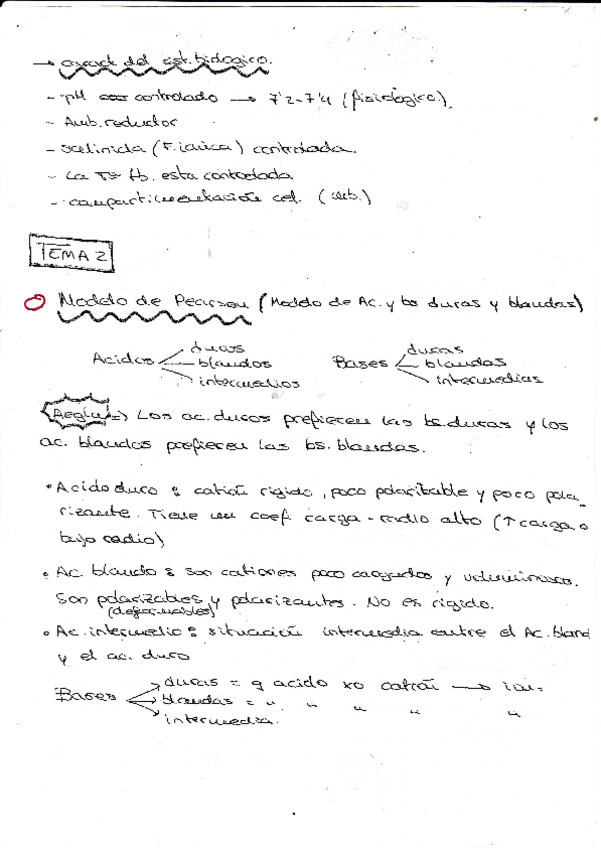 → caract del sist. biologico.
- pH controlado → 7'2-7'4 (fisiologico).
- Amb. reductor
- salinida (F. ionica) controlada.
- La Tª tb. esta controlada
- compartimentación cel. ( )
TEMA 2
Modelo de Pearson (Modelo de Ac. y bs duras y blandas)
Acidos duros blandos intermedios
Bases duras blandas intermedias
Regla => Los ac. duros prefieren las bs. duras y los
ac. blandos prefieren las bs. blandas.
• Acido duro : catión rigido, poco polarizable y poco pola-
rizante. Tiene un coef. carga-radio alto (↑carga o
bajo radio)
• Ac. blando : son cationes poco cargados y voluminosos.
Son polarizables y polarizantes. No es rigido.
(deformables)
• Ac. intermedio : situación intermedia entre el Ac. bland
y el ac. duro
Bases duras = q acido xo catión → ion-
blandas = " " " " "
intermedia.